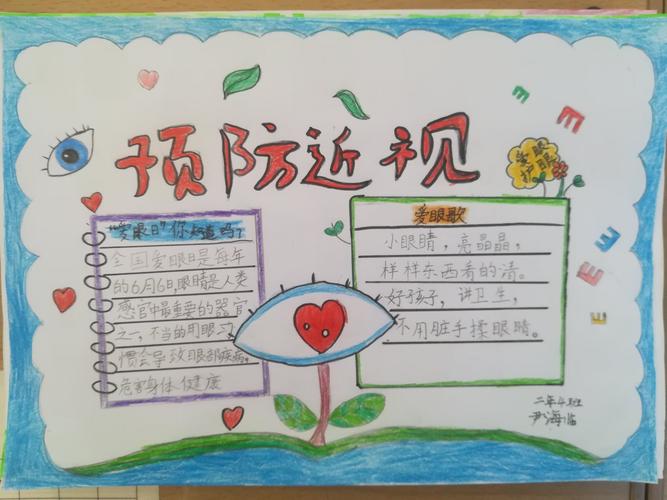 预防近视
爱眼
护眼
"爱眼日"你知道吗?
全国爱眼日是每年
的6月6日,眼睛是人类
感官中最重要的器官
之一,不当的用眼习
惯会导致眼部疾病,
危害身体健康
爱眼歌
小眼睛,亮晶晶,
样样东西看的清。
好孩子,讲卫生,
不用脏手揉眼睛。
二年4班
尹海临
E
E
E
E
E
E